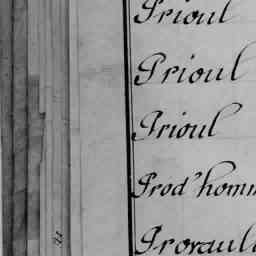 Prioul
Prioul
Prioul
Prod'hom
Provaul